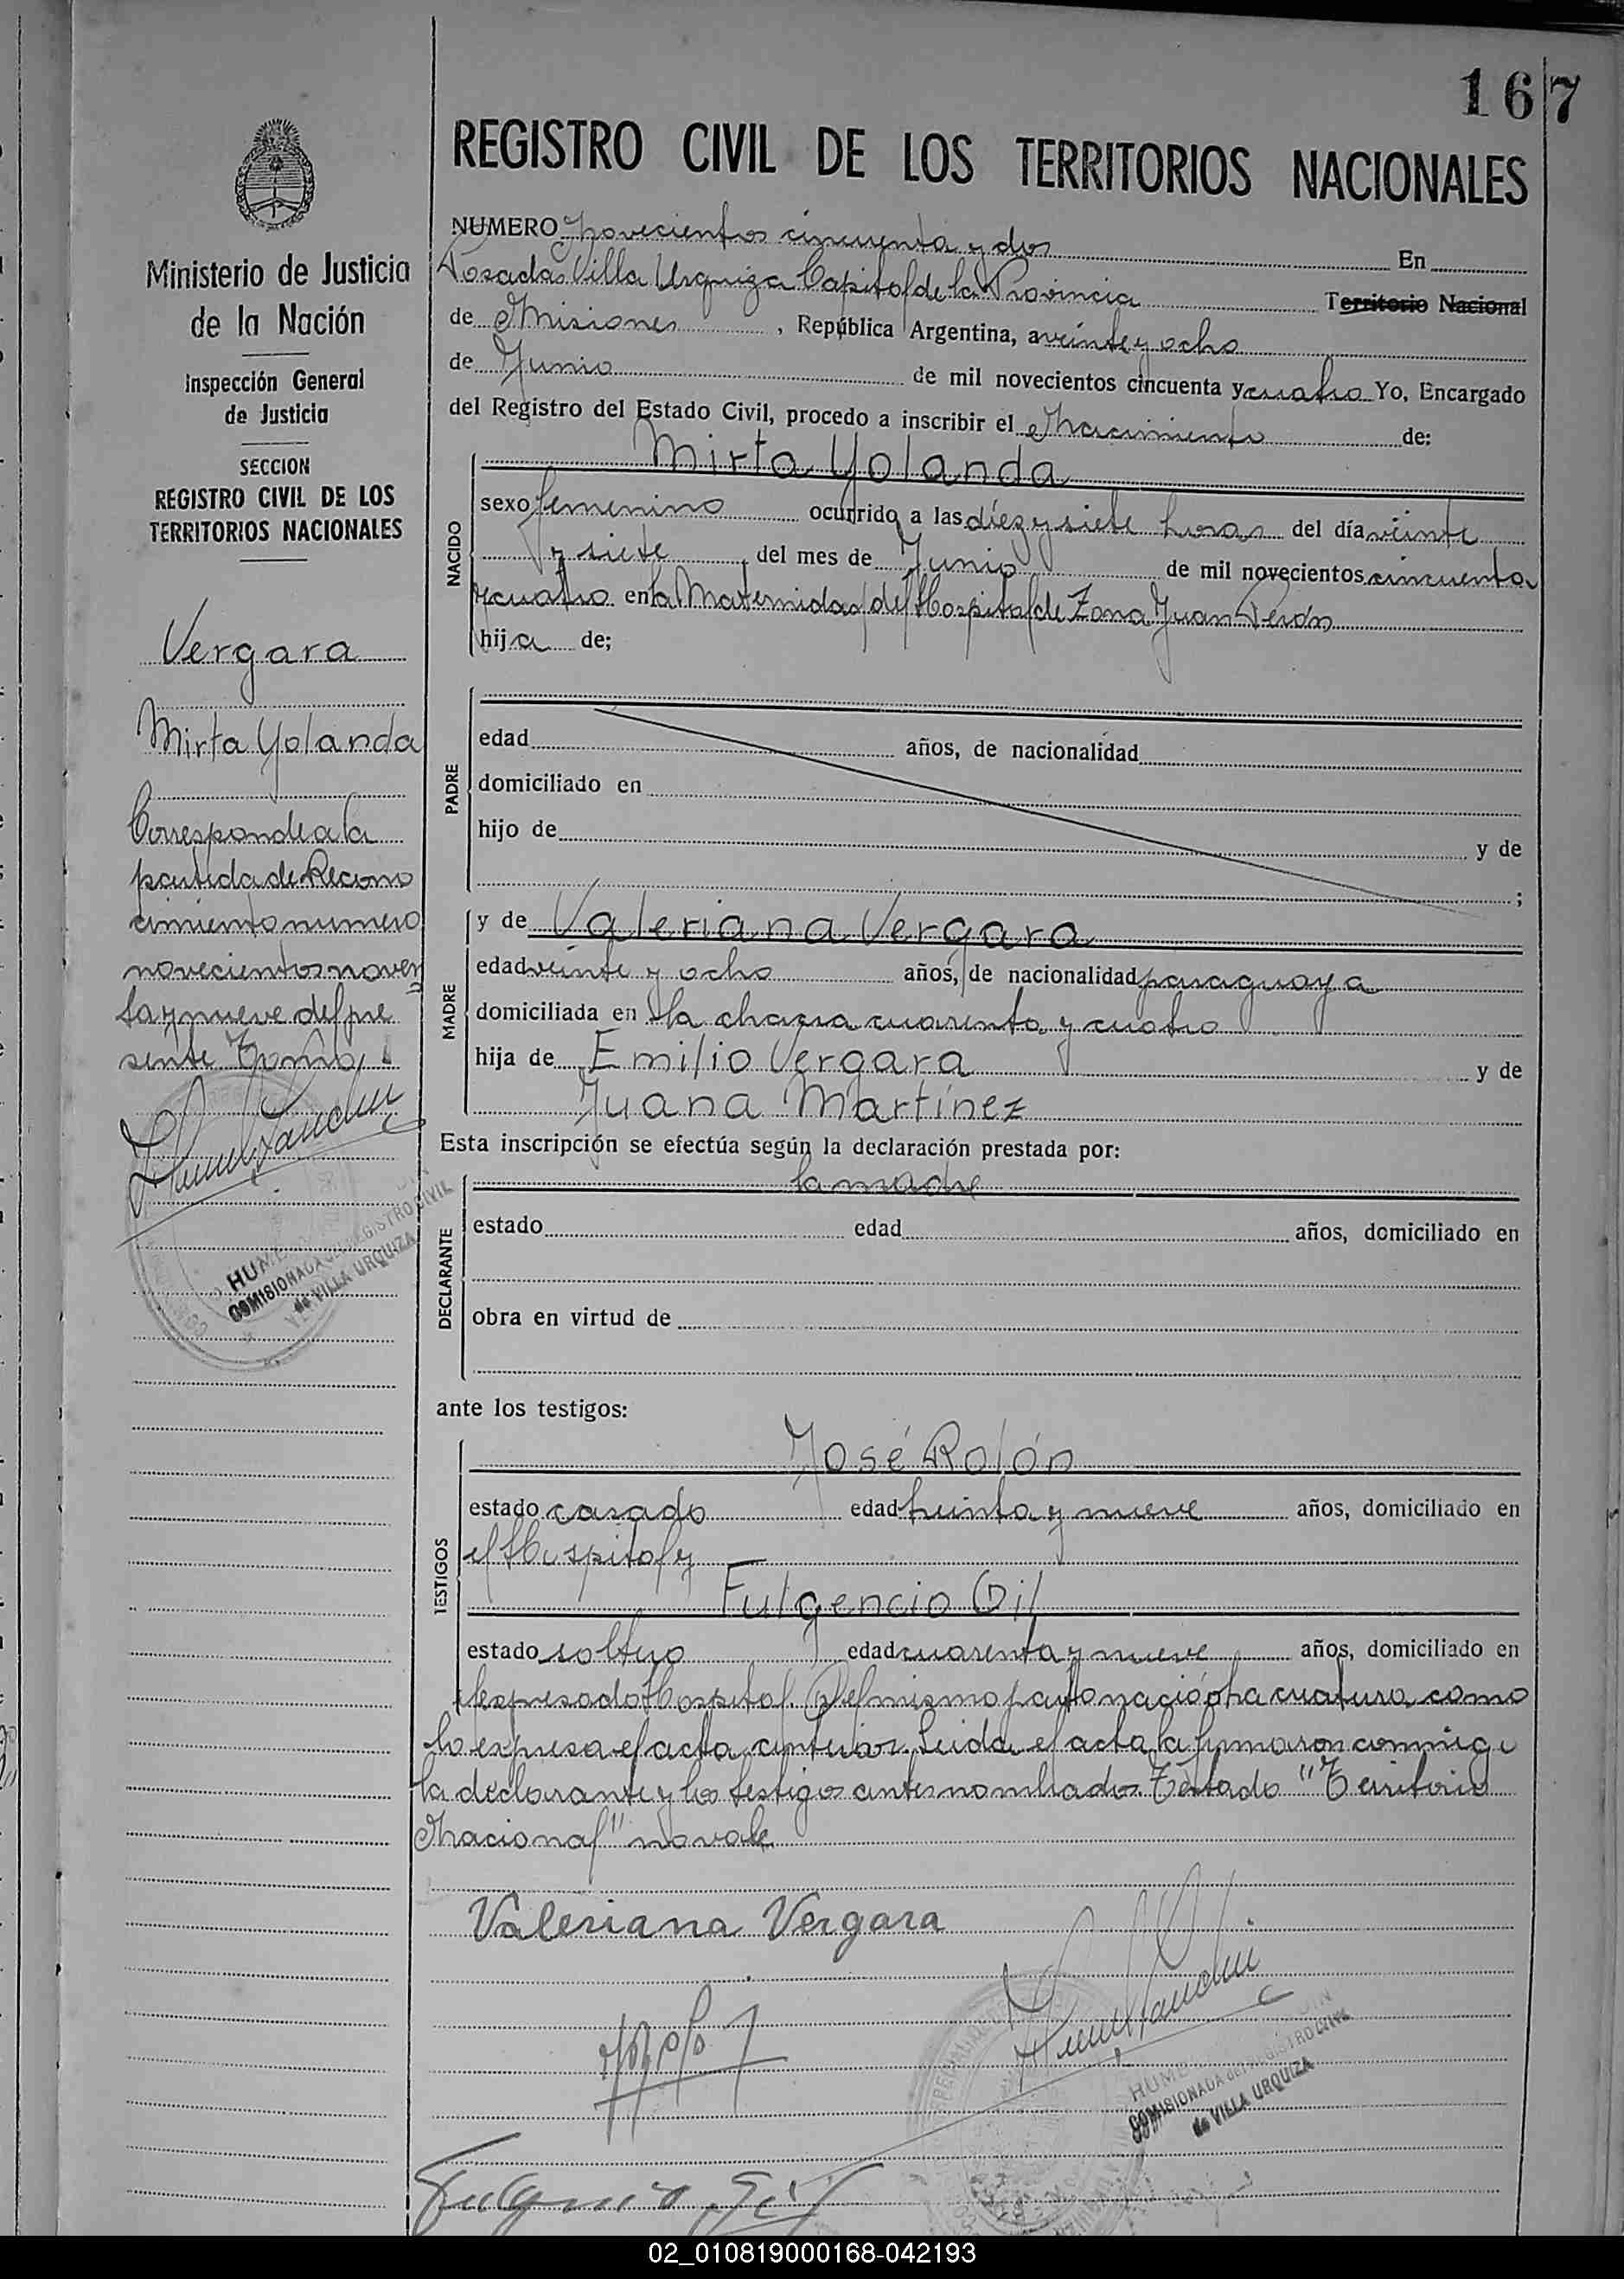 167
REGISTRO CIVIL DE LOS TERRITORIOS NACIONALES
Ministerio de Justicia
de la Nación
Inspección General
de Justicia
SECCION
REGISTRO CIVIL DE LOS
TERRITORIOS NACIONALES
Vergara
Mirta Yolanda
Corresponde a la
partida de Recono
cimiento numero
novecientos noven
ta y nueve del pre
sente Tomo
HUM
COMISIONADA del REGISTRO CIVIL
de VILLA URQUIZA
NUMERO Novecientos cincuenta y dos En
Posadas Villa Urquiza Capital de la Provincia Territorio Nacional
de Misiones, República Argentina, a veinte y ocho
de Junio de mil novecientos cincuenta y cuatro Yo, Encargado
del Registro del Estado Civil, procedo a inscribir el Nacimiento de:
NACIDO
Mirta Yolanda
sexo femenino ocurrido a las diez y siete horas del día veinte
y siete del mes de Junio de mil novecientos cincuenta
y cuatro en la Maternidad del Hospital de Zona Juan Perón
hija de;
PADRE
edad años, de nacionalidad
domiciliado en
hijo de y de
;
MADRE
y de Valeriana Vergara
edad veinte y ocho años, de nacionalidad paraguaya
domiciliada en la chacra cuarenta y cuatro
hija de Emilio Vergara y de
Juana Martínez
Esta inscripción se efectúa según la declaración prestada por:
DECLARANTE
la madre
estado edad años, domiciliado en
obra en virtud de
ante los testigos:
TESTIGOS
José Rolón
estado casado edad treinta y nueve años, domiciliado en
el Hospital y
Fulgencio Gil
estado soltero edad cuarenta y nueve años, domiciliado en
el expresado Hospital. Del mismo parto nació otra criatura como
lo expresa el acta anterior. Leida el acta la firmaron conmigo
la declarante y los testigos antes nombrados. Testado "Territorio
Nacional" no vale
Valeriana Vergara
HUM
COMISIONADA del REGISTRO CIVIL
de VILLA URQUIZA
Fulgencio Gil
02_010819000168-042193